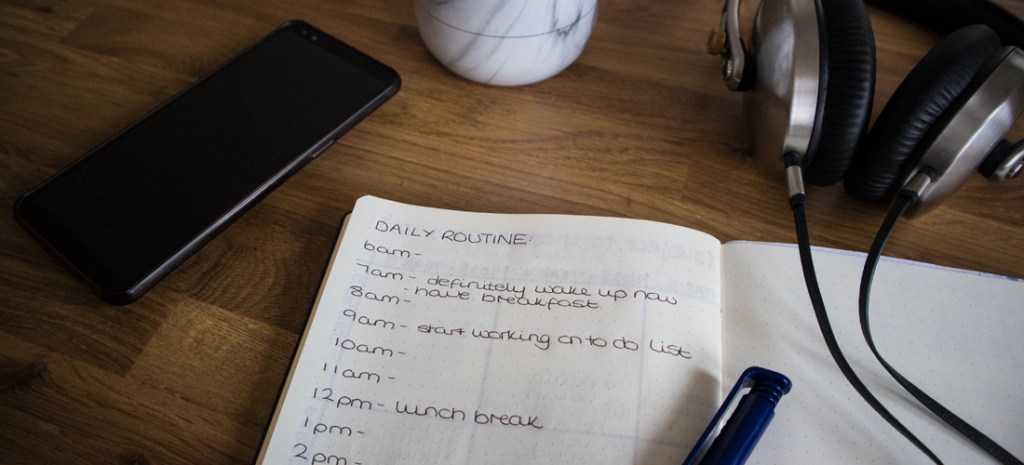 DAILY ROUTINE:
6am-
7am- definitely wake up now
8am- have breakfast
9am- start working on to do list
10am-
11am-
12pm- lunch break
1pm-
2pm-